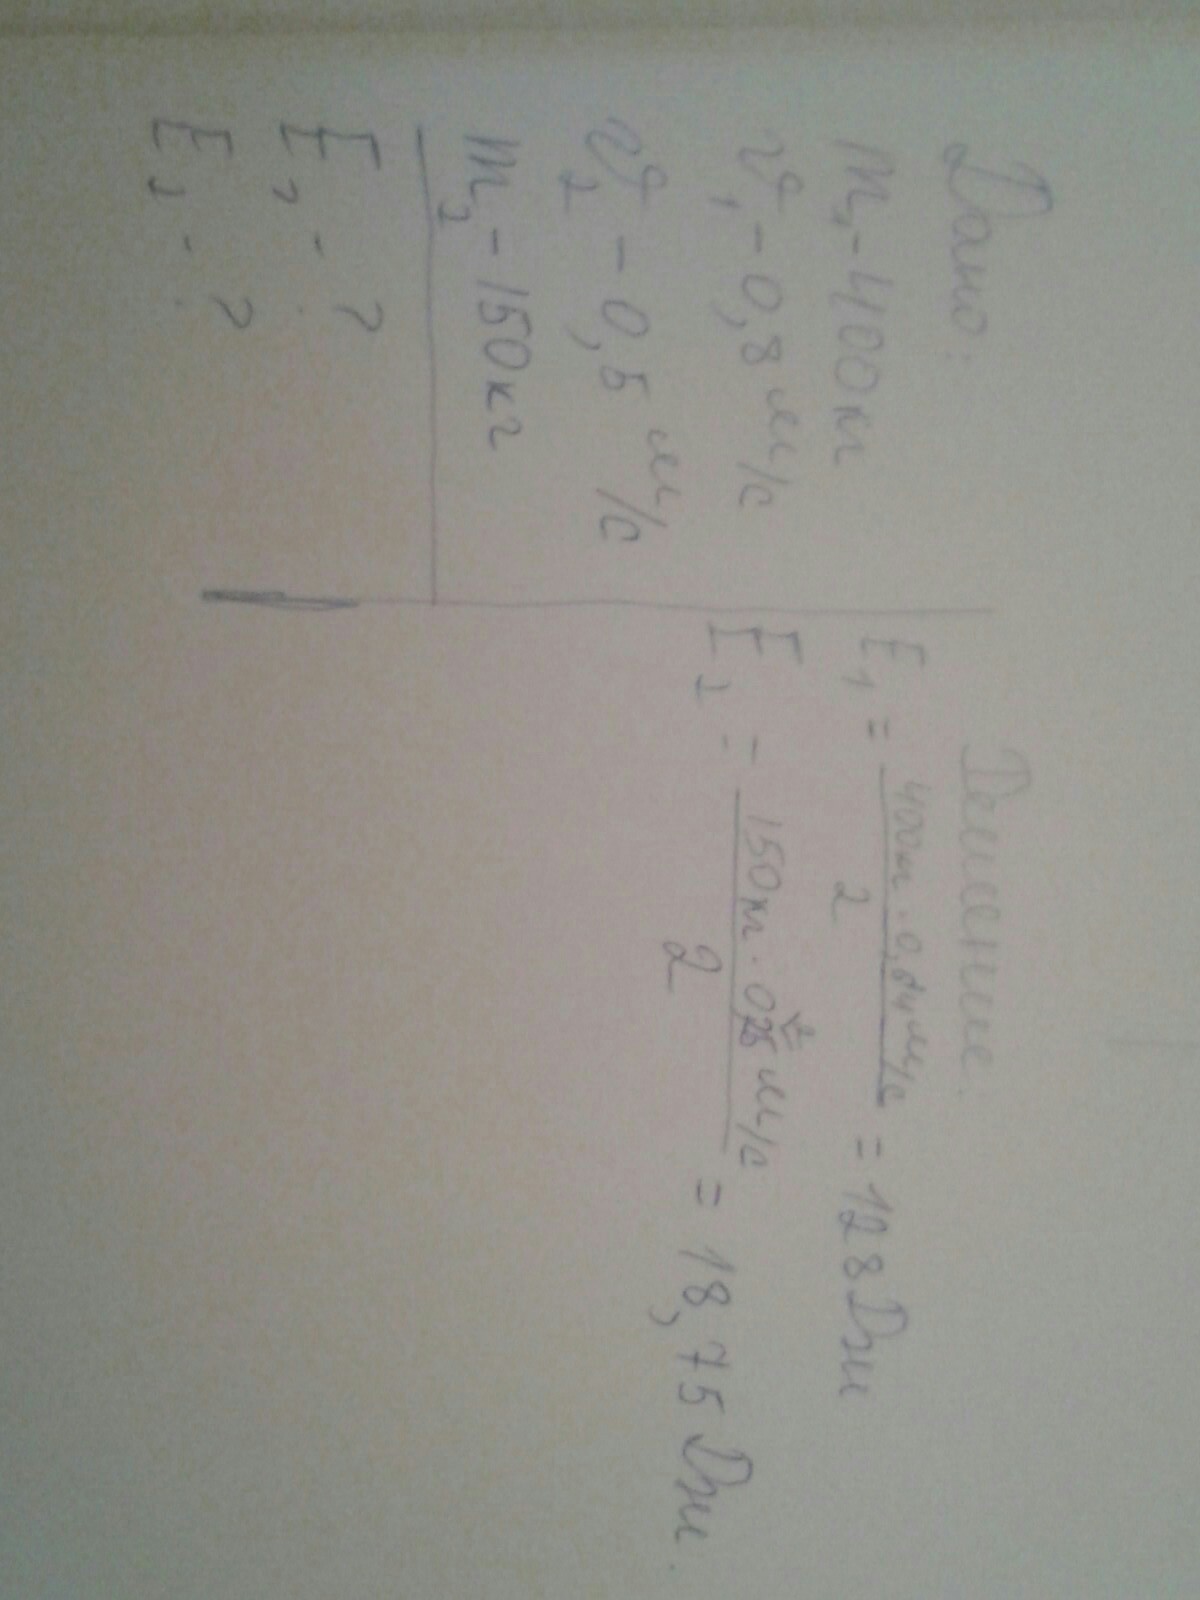 Дано:
m₁ - 400 кг
v₁ - 0,8 м/с
v₂ - 0,5 м/с
m₂ - 150 кг
E₁ - ?
E₂ - ?
Решение.
E₁ = 400кг · 0,64 м/с / 2 = 128 Дж
E₂ = 150кг · 0,25 м/с / 2 = 18,75 Дж.